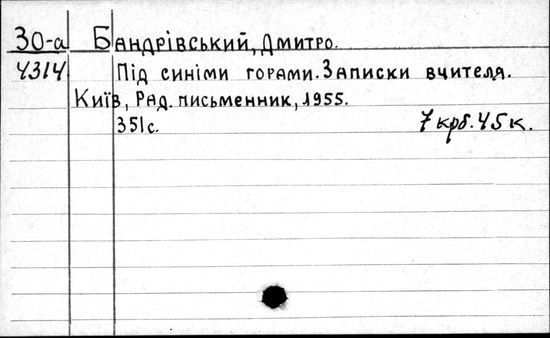 30-а Бандрівський, Дмитро.
4314 Під синіми горами. Записки вчителя.
Київ, Рад. письменник, 1955.
351с. 7 крб. 45 к.